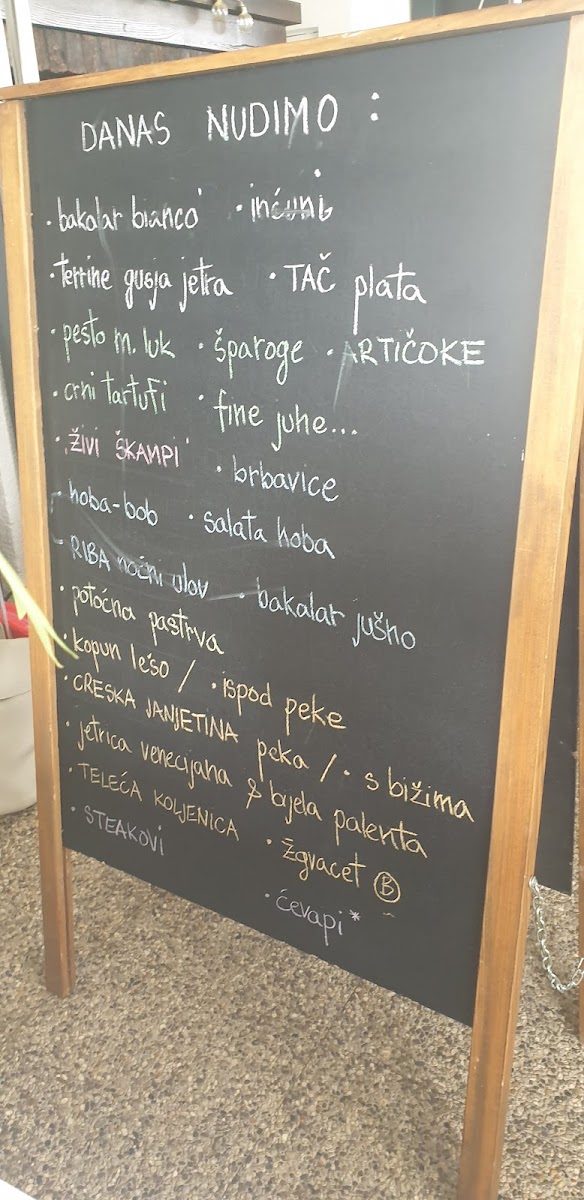 DANAS NUDIMO :
· bakalar bianco' · inćuni
· terrine gusja jetra · TAČ plata
· pesto m. luk · šparoge · ARTIČOKE
· crni tartufi · fine juhe...
· ŽIVI ŠKAMPI · brbavice
· hoba-bob · salata hoba
- RIBA noćni ulov · bakalar jušno
· potočna pastrva
· kopun lešo / · ispod peke
· CRESKA JANJETINA peka / · s bižima
· jetrica venecijana & bijela palenta
· TELEĆA KOLJENICA · žgvacet Ⓑ
· STEAKOVI · ćevapi*